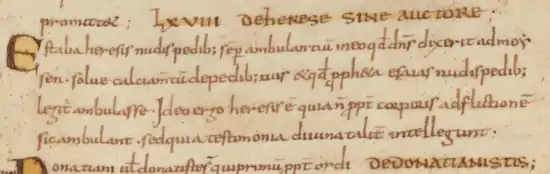 promittet; LXVIII DEHERESE SINE AUCTORE;
Estalia heresis nudis pedib; semp ambulantiū ineo qd dns dixerit admoy
sen. Solve calciamtū de pedib; tuis & qd ppheta esaias nudis pedib;
legit ambulasse. Ideo ergo heresis ē quia n ppt corporis adflictionē
sic ambulant. sed quia testimonia divina talit intellegunt.
Donatiani ul donatiste qui primum ppt ordi DEDONATIANISTIS;